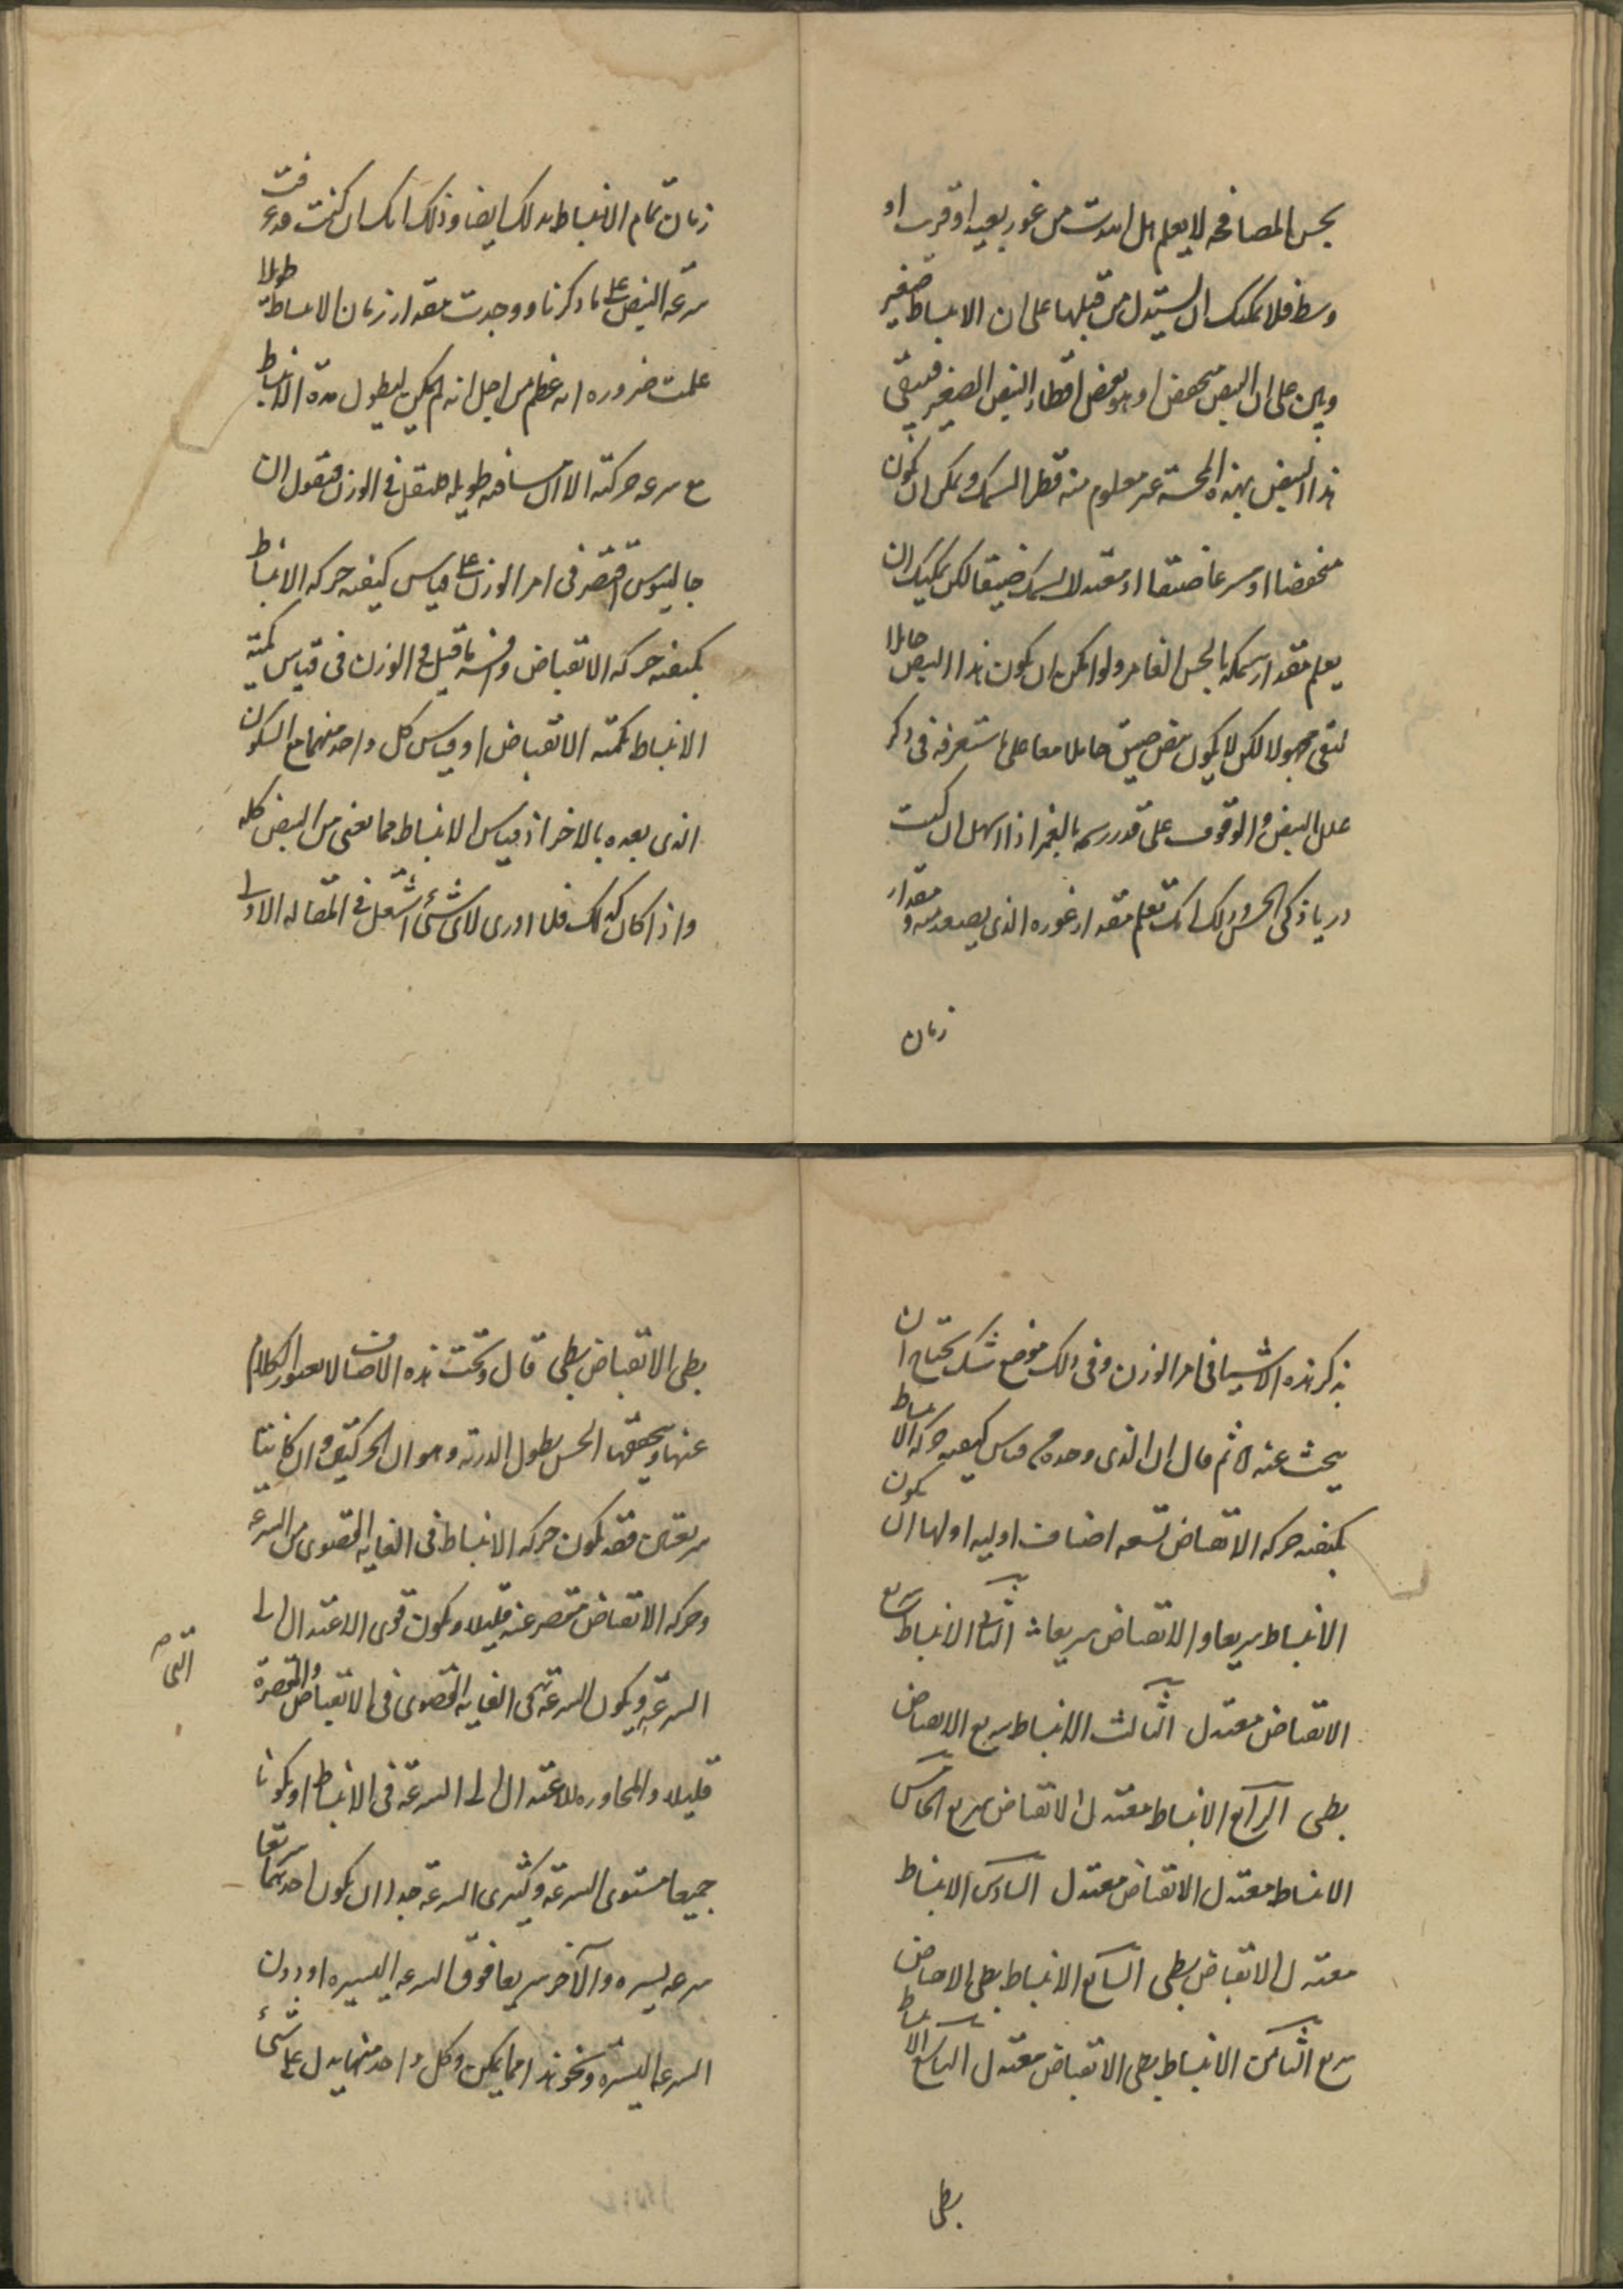 بحس المصافحه لا يعلم هل ابتدت من غور بعيد او قريب او
وسط فلا يمكنك ان تستدل من قبلها على ان الانبساط صغير
وبين على ان النبض منخفض او هو بعض اقطار النبض الصغير فيبقى
هذا النبض بهذه المحسة غير معلوم منه قطر السمك ويمكن ان يكون
منخفضا او مسرعا ضيقا او معتدلا لسمك ضيقا لكن يمكنك ان
يعلم مقدار سمكه بالحس الغامر ولو امكن ان يكون هذا النبض حاملا
لبقى مجهولا لكن لا يكون نبض ضيق حاملا معا على ما ستعرفه فى ذكر
علل النبض والوقوف على قدر رسمه بالغمز اذا اسهل ان كنت
دربا ذكى الحس وذلك انك تعلم مقدار غوره الذى يصعد منه ومقدار
زمان
زمان تمام الانبساط بذلك ايضا وذلك انك ان كنت قد عرفت
سرعة النبض على ما ذكرنا ووجدت مقدار زمان الانبساط طويلا
علمت ضروره انه عظم من اجل انه لم يكن ليطول مدة الانبساط
مع سرعه حركته الا ان مسافته طويله فلنقل فى الوزن فنقول ان
جالينوس اقتصر فى امر الوزن على قياس كيفيه حركه الانبساط
بكيفيه حركه الانقباض وفسر ما قيل فى الوزن فى قياس كمية
الانبساط بكميه الانقباض او قياس كل واحد منهما مع السكون
الذى بعده بالاخر اذ قياس الانبساط مما يغنى من النبض كله
واذا كان كذلك فلما ادرى لاى شئ اشتغل فى المقاله الاولى
بذكر هذه الاشيا فى امر الوزن وفى ذلك موضع شك يحتاج ان
يبحث عنه ثم قال ان الذى وجده من قياس كيفيه حركه الانبساط
بكيفيه حركه الانقباض تسعه اصناف اوليه اولها ان يكون
الانبساط سريعا والانقباض سريعا الثانى الانبساط سريع
الانقباض معتدل الثالث الانبساط سريع الانقباض
بطى الرابع الانبساط معتدل الانقباض سريع الخامس
الانبساط معتدل الانقباض معتدل السادس الانبساط
معتدل الانقباض بطى السابع الانبساط بطى الانقباض
سريع الثامن الانبساط بطى الانقباض معتدل التاسع الانبساط
بطى
بطى الانقباض بطى قال وتحت هذه الاصناف لا يعبر الكلام
عنها ويحققها الحس بطول الدربه وهو ان الحركتين وان كانتا
سريعتين فقد يكون حركه الانبساط فى الغايه القصوى من السرعه
وحركه الانقباض مقصر عنه قليلا ويكون قوى الاعتدال الى
السرعه ويكون السرعه هى الغايه القصوى فى الانقباض والمقصرة
قليلا والمجاوره للاعتدال الى السرعة فى الانبساط او يكونا
جميعا مستوى السرعة وكثيرى السرعة جدا او ان يكون احدهما سريعا
سرعه يسيره والآخر سريعا فوق السرعه اليسيره او دون
السرعه اليسيره ونحو هذا مما يمكن وكل واحد منها يدل على شئ